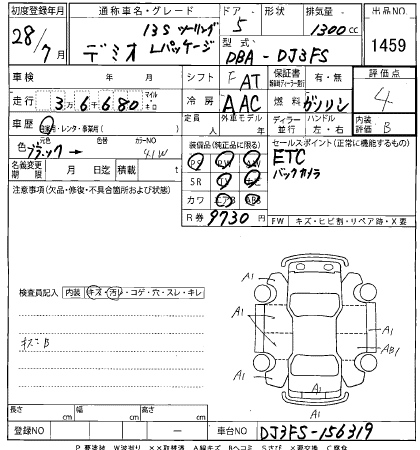 初度登録年月 通称車名・グレード ドア 形状 排気量 出品NO
28/7月 デミオ 13S ツーリング Lパッケージ 5 1300cc 1459
型式 DBA-DJ3FS
車検 年 月 シフト FAT 保証書 有・無 評価点
走行 3万6千680 マイル キロ 冷房 AAC 燃料 ガソリン 4
車歴 自家用・レンタ・事業用( ) 定員 人 外車モデル ディーラー 並行 ハンドル 左・右 内装評価 B
色 元色 ブラック 色替 カラーNO 41W 装備品(純正品に限る) セールスポイント(正常に機能するもの)
PS PW AW ETC
名義変更期限 月 日迄 積載 t SR TV ナビ バックカメラ
注意事項(欠品・修復・不具合箇所および状態) カワ エアB ABS
R券 9730円 FW キズ・ヒビ割・リペア跡・X要
検査員記入 内装 キズ・汚レ・コゲ・穴・スレ・キレ
キズ=B
A1 A1
A1 A1
A1 AB1
A1 A1
長さ cm 幅 cm 高さ cm
登録NO ー 車台NO DJ3FS-156319
P 要塗装 W波当り ××取替済 A線キズ Bヘコミ Sさび X要交換 C腐食